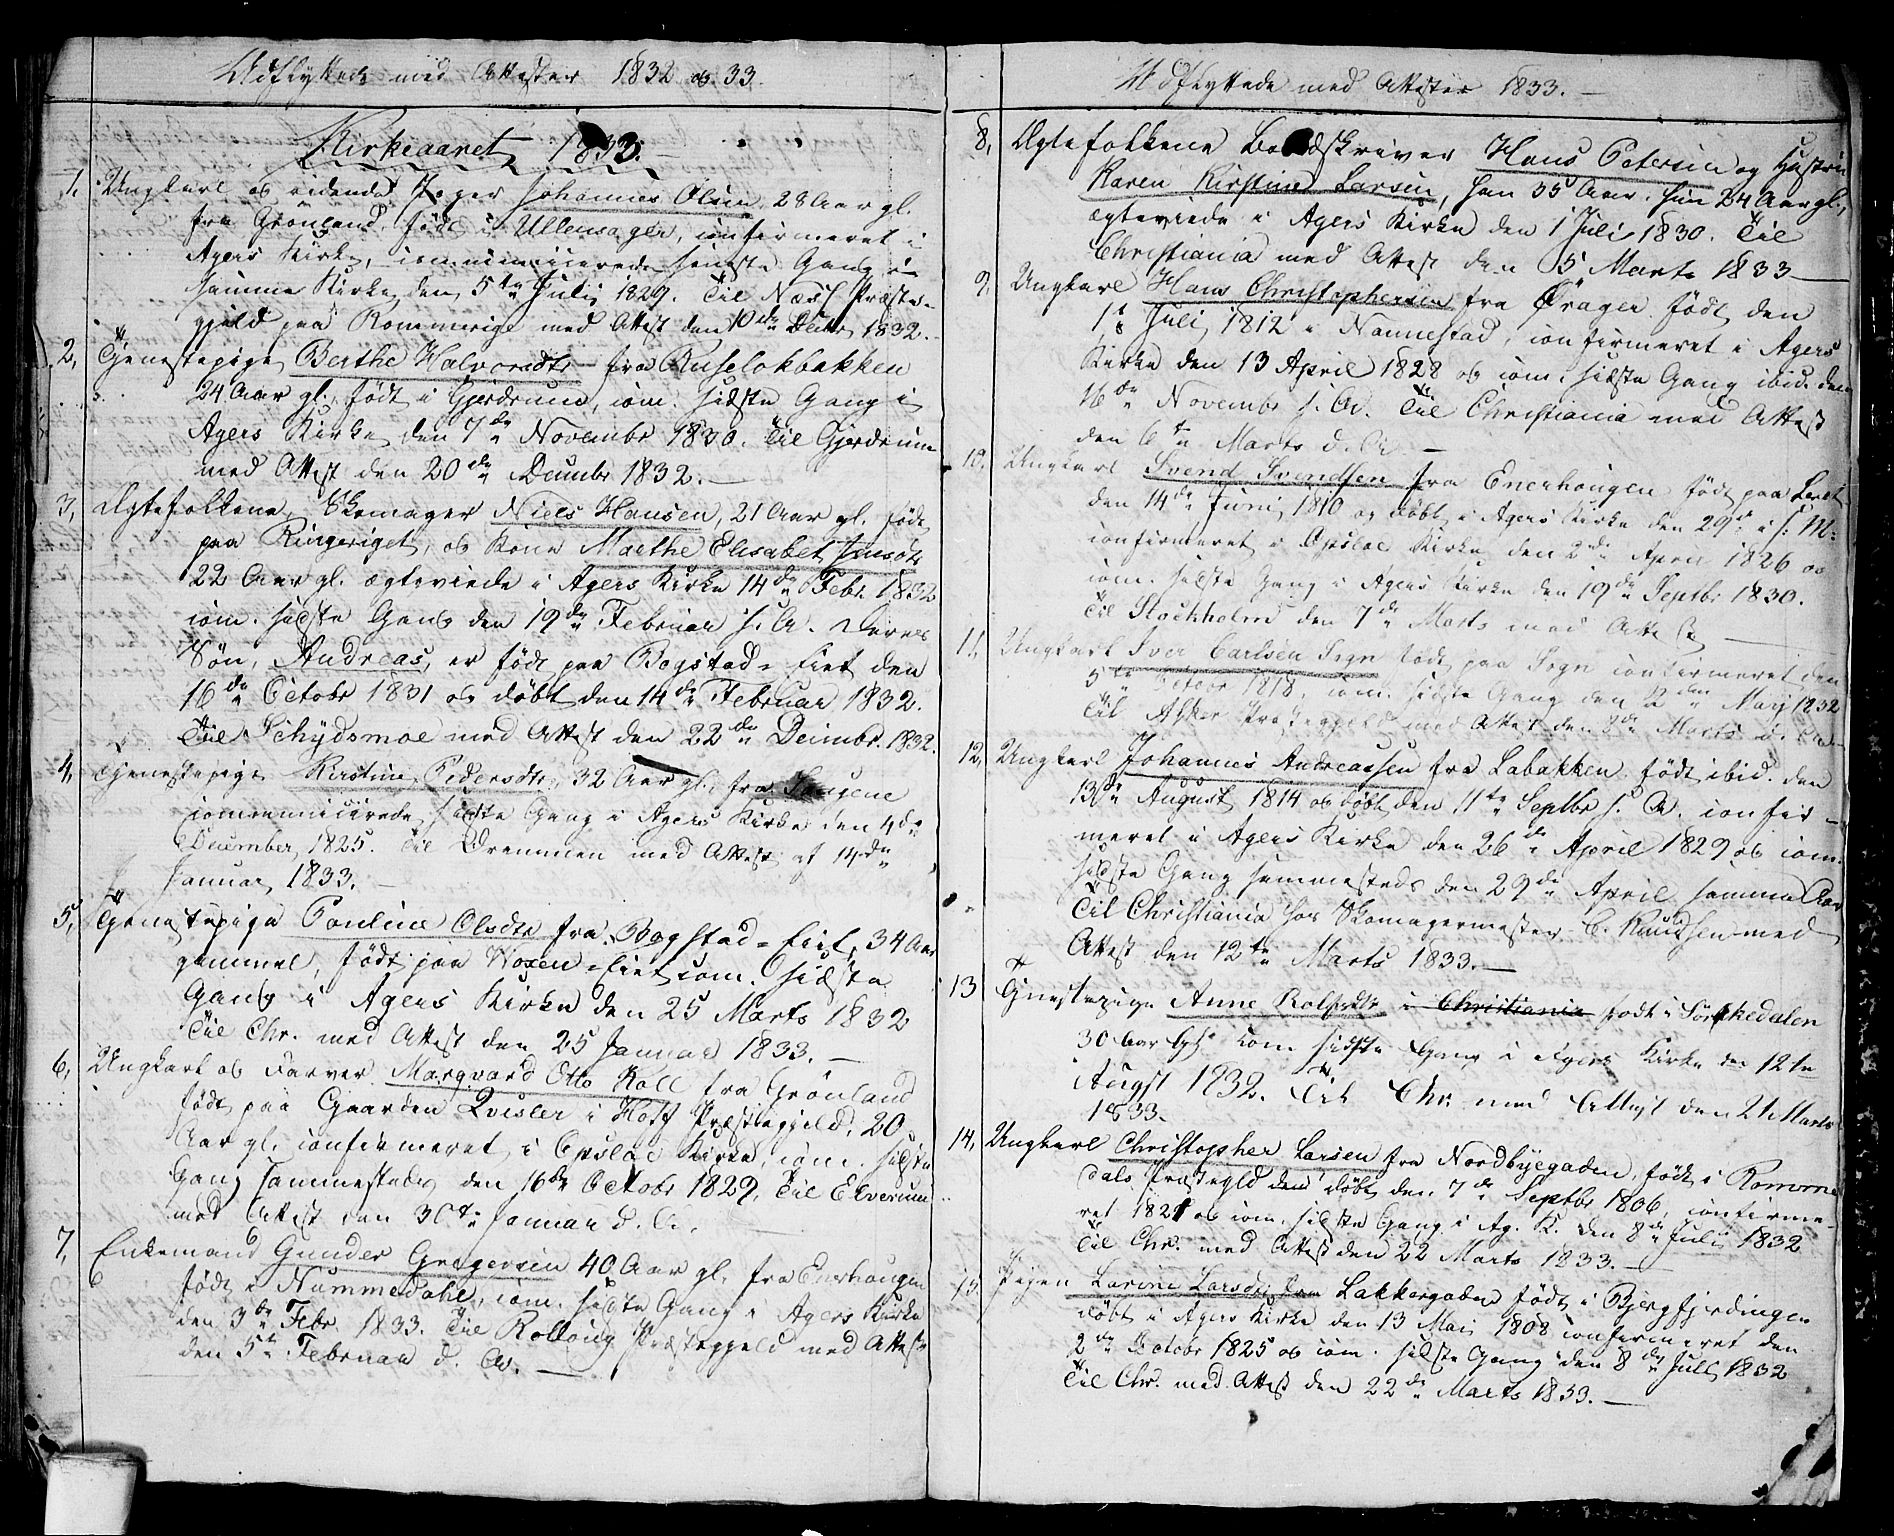 Udflyttede med Attester 1832 og 33.
Kirkeaaret 1833.
1. Ungkarl og ridende Jæger Johannes Olsen 28 Aar gl.
fra Grönland, födt i Ullensager, confirmeret i
Agers Kirke, communicerede seneste Gang i
samme Kirke den 5te Julij 1829. Til Næss Præste-
gjeld paa Rommerige med Attest den 10de Decbr 1832.
2, Tjenestepige Berthe Halvorsdtr fra Ruselökbakken
24 Aar gl., födt i Gjerdrum, com. sidste Gang i
Agers Kirke den 7de Novembr 1830. Til Gjerdrum
med Attest den 20de Decembr 1832.
3, Ægtefolkene, Skomager Niels Hansen, 21 Aar gl. födt
paa Ringeriget, og Kone Marthe Elisabet Jensdtr
22 Aar gl. ægteviede i Agers Kirke 14de Febr. 1832
com. sidste Gang den 19de Februar s. A. Deres
Sön, Andreas, er födt paa Bogstad-Eiet den
16de Octobr 1831 og döbt den 14de Februar 1832.
Til Schydsmoe med Attest den 22de Decimbr. 1832.
4, Tjenestepige Kirstine Pedersdtr, 32 Aar gl, fra Saugene
communicerede sidste Gang i Agers Kirke den 4de
December 1825. Til Drammen med Attest af 14de
Januar 1833.
5, Tjenestepige Pauline Olsdtr fra Bogstad-Eiet, 34 Aar
gammel, födt paa Voxen-Eiet com. sidste
Gang i Agers Kirke den 25 Marts 1832
Til Chr. med Attest den 25 Januar 1833.
6, Ungkarl og Farver Marqvard Otto Roll fra Grönland
födt paa Gaarden Qvisler i Hoff Præstegjeld, 20
Aar gl. confirmeret i Opsloe Kirke, com. sidste
Gang sammesteds den 16de Octobr 1829. Til Elverum
med Attest den 30te Januar d. A.
7, Enkemand Gunder Gregersen 40 Aar gl. fra Enerhougen
födt i Nummedahl, com. sidste Gang i Agers Kirke
den 3de Febr. 1833. Til Rolloug Præstegjeld med Attest
den 5te Februar d. A.
Udflyttede med Attester 1833.
8, Ægtefolkene Hans Petersen og Hustru
Karen Kirstine Larsen, han 35 Aar, hun 24 Aar gl,
ægteviede i Agers Kirke den 1 Juli 1830. Til
Christiania med Attest den 5 Marts 1833
9, Ungkarl Hans Christophersen fra Örager födt den
1 Juli 1812 i Nannestad, confirmeret i Agers
Kirke den 13 April 1828 og com. sidste Gang ibid. den
16de Novembr s. A. Til Christiania med Attest
den 6te Marts d. A.
10, Ungkarl Svend Svendsen fra Enerhougen födt paa
den 14de Junij 1810 og döbt i Agers Kirke den 29de i s. M.
confirmeret i Opsloe Kirke den 2den April 1826 og
com. sidste Gang i Agers Kirke den 19de Septbr 1830.
Til Stockholm den 7de Marts med Attest
11, Ungkarl Iver Carlsen Sogn födt paa Sogn confirmeret den
5te Octobr 1818, com. sidste Gang den 2den Maij 1832
Til Asker Præstegjeld med Attest den 8de Marts d. A.
12, Ungkarl Johannes Andreassen fra Labakken födt ibid. den
13de August 1814 og döbt den 11te Septbr s. A. confir-
meret i Agers Kirke den 26de April 1829 og com.
sidste Gang sammesteds den 29de April samme Aar
Til Christiania hos Skomagermester C. Knudsen med
Attest den 12te Marts 1833.
13 Tjenestepige Anne i Christiania födt i Sörkedalen
30 Aar gl. com sidste Gang i Agers Kirke den 12te
Augst 1832. Til Chr. med Attest den 21 Marts
1833.
14, Ungkarl Christopher Larsen fra Nordbyegaden, födt i Romme-
dals Præstegjeld den döbt den 7de Septbr 1806, confirme-
ret 1821 og com. sidste Gang i Ag. K. den 8de Julii 1832
Til Chr. med Attest den 22 Marts 1833.
15. Pigen Larine Larsdtr fra Lakkegaden födt i Bjergfjerdingen
döbt i Agers Kirke den 13 Maij 1808 confirmeret den
2de Octobr 1825 og com. sidste Gang den 8de Julij 1832
Til Chr. med Attest den 22de Marts 1833.